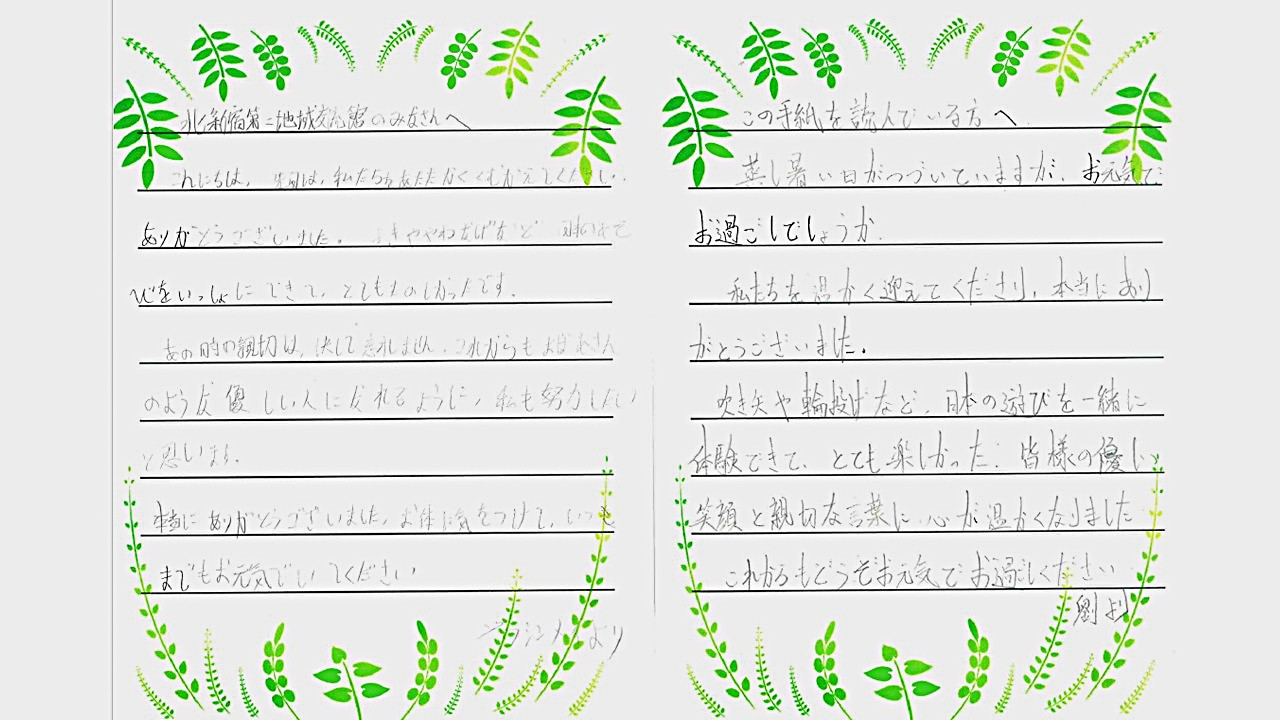 北新宿第二地域交流館のみなさんへ
こんにちは、先日は、私たちをあたたかくむかえてください
ありがとうございました。ふきややわなげなど 日本のあそ
びをいっしょにできて、とてもたのしかったです。
あの時の親切は、決して忘れません。これからも
のような優しい人になれるように、私も努力したい
と思います。
本当にありがとうございました。お体に気をつけて、いつ
までもお元気でいてください
より
この手紙を読んでいる方へ
蒸し暑い日がつづいていますが、お元気で
お過ごしでしょうか。
私たちを温かく迎えてくださり、本当にあり
がとうございました。
吹き矢や輪投げなど、日本の遊びを一緒に
体験できて、とても楽しかった。皆様の優しい
笑顔と親切な言葉に、心が温かくなりました
これからもどうぞお元気でお過しください
劉より